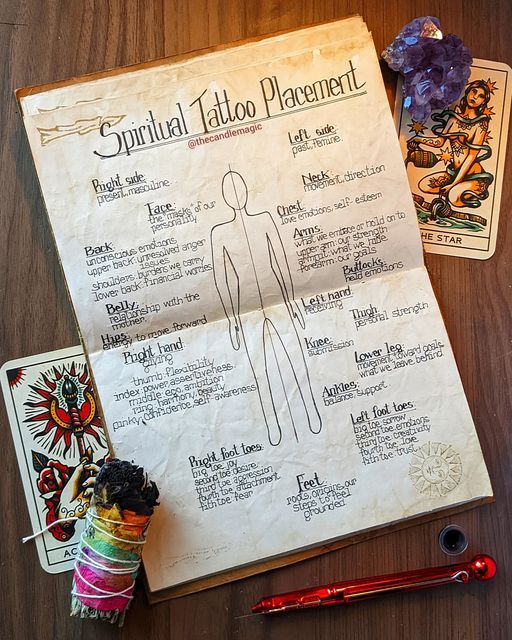 Spiritual Tattoo Placement
@thecandlemagic
Right side:
present, masculine.
Face:
the "masks" of our
personality
Back:
unconscious emotions
upper back: unresolved anger
issues
shoulders: burdens we carry
lower back: financial worries
Belly:
relationship with the
mother.
Hips:
energy to move forward
Right hand
giving
thumb: flexibility
index: power, assertiveness.
middle: ego, ambition
ring: harmony, beauty
pinky: confidence, self-awareness
Right foot toes:
big toe: joy
second toe: desire
third toe: aggression
fourth toe: attachment
fifth toe: fear
Left side:
past, femine.
Neck:
movement, direction
Chest:
love emotions, self-esteem
Arms:
what we embrace or hold on to
upper arm: our strength
armpit: what we hide
forearm: our goals
Buttocks:
held emotions.
Left hand
receiving
Thigh:
personal strength
Knee:
submission
Lower leg:
movement toward goals
what we leave behind
Ankles:
balance, support.
Left foot toes:
big toe: sorrow
second toe: emotions
third toe: creativity
fourth toe: love
fifth toe: trust
Feet:
roots, origins, our
steps to feel
grounded.
THE STAR